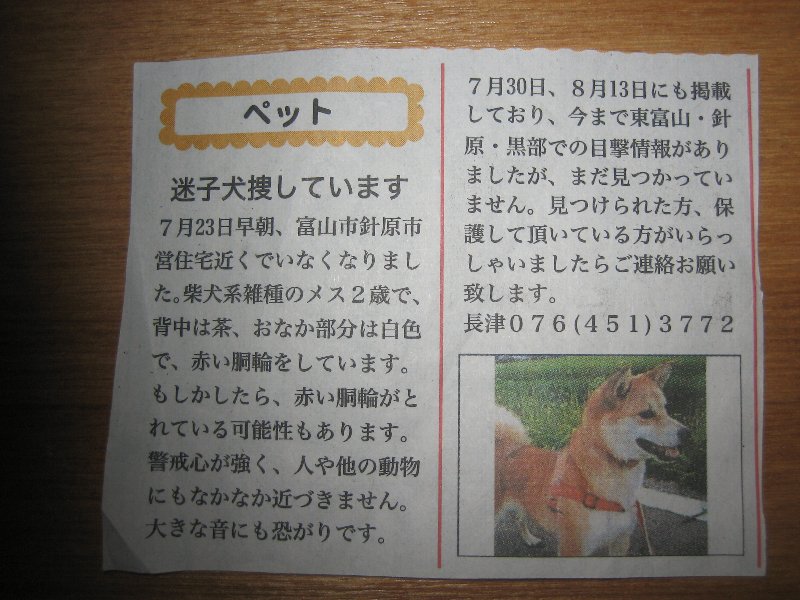 ペット
迷子犬捜しています
７月23日早朝、富山市針原市
営住宅近くでいなくなりまし
た。柴犬系雑種のメス２歳で、
背中は茶、おなか部分は白色
で、赤い胴輪をしています。
もしかしたら、赤い胴輪がと
れている可能性もあります。
警戒心が強く、人や他の動物
にもなかなか近づきません。
大きな音にも恐がりです。
７月30日、８月13日にも掲載
しており、今まで東富山・針
原・黒部での目撃情報があり
ましたが、まだ見つかってい
ません。見つけられた方、保
護して頂いている方がいらっ
しゃいましたらご連絡お願い
致します。
長津０７６(４５１)３７７２